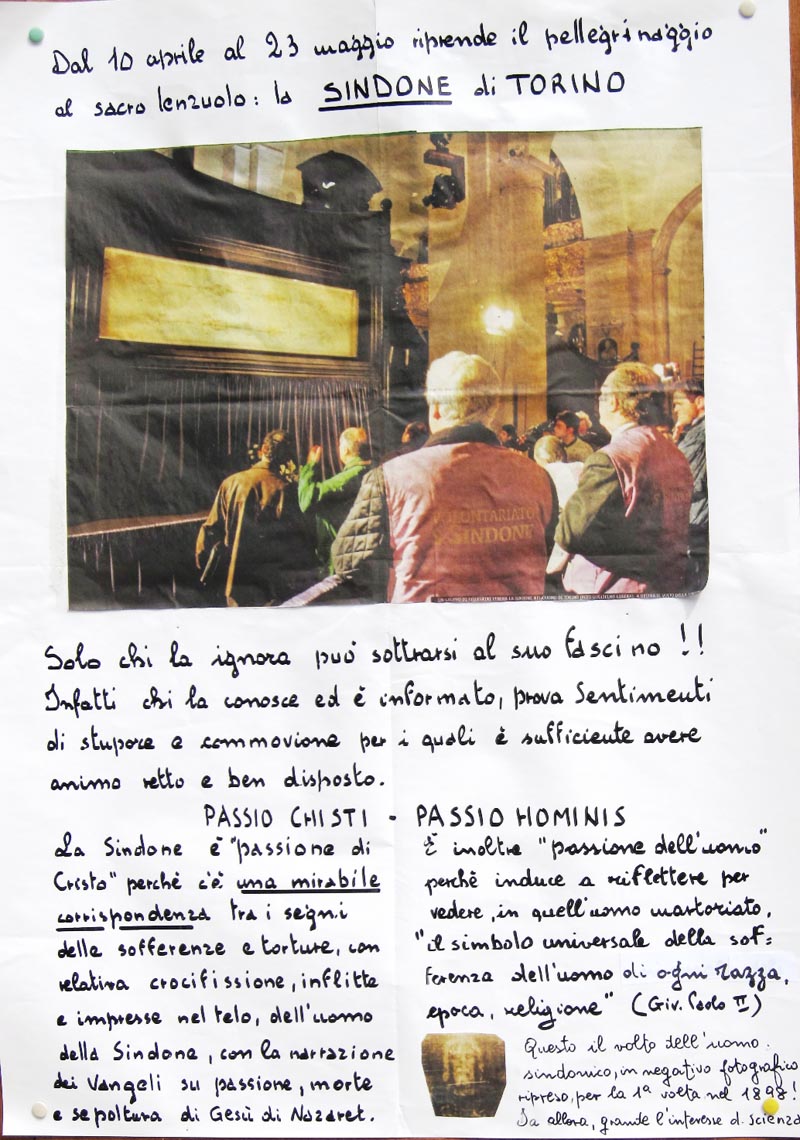 Dal 10 aprile al 23 maggio riprende il pellegrinaggio
al sacro lenzuolo: la SINDONE di TORINO
VOLONTARIATO
SINDONE
Solo chi la ignora può sottrarsi al suo fascino !!
Infatti chi la conosce ed è informato, prova Sentimenti
di stupore e commovione per i quali è sufficiente avere
animo retto e ben disposto.
PASSIO CHISTI - PASSIO HOMINIS
La Sindone è "passione di
Cristo" perchè c'è una mirabile
corrispondenza tra i segni
delle sofferenze e torture, con
relativa crocifissione, inflitte
e impresse nel telo, dell'uomo
della Sindone, con la narrazione
dei Vangeli su passione, morte
e sepoltura di Gesù di Nazaret.
È inoltre "passione dell'uomo"
perchè induce a riflettere per
vedere, in quell'uomo martoriato,
"il simbolo universale della sof=
ferenza dell'uomo di ogni razza,
epoca, religione" (Giv. Paolo II)
Questo il volto dell'uomo
sindonico, in negativo fotografico
ripreso, per la 1ª volta nel 1898!
Da allora, grande l'interesse d. scienza